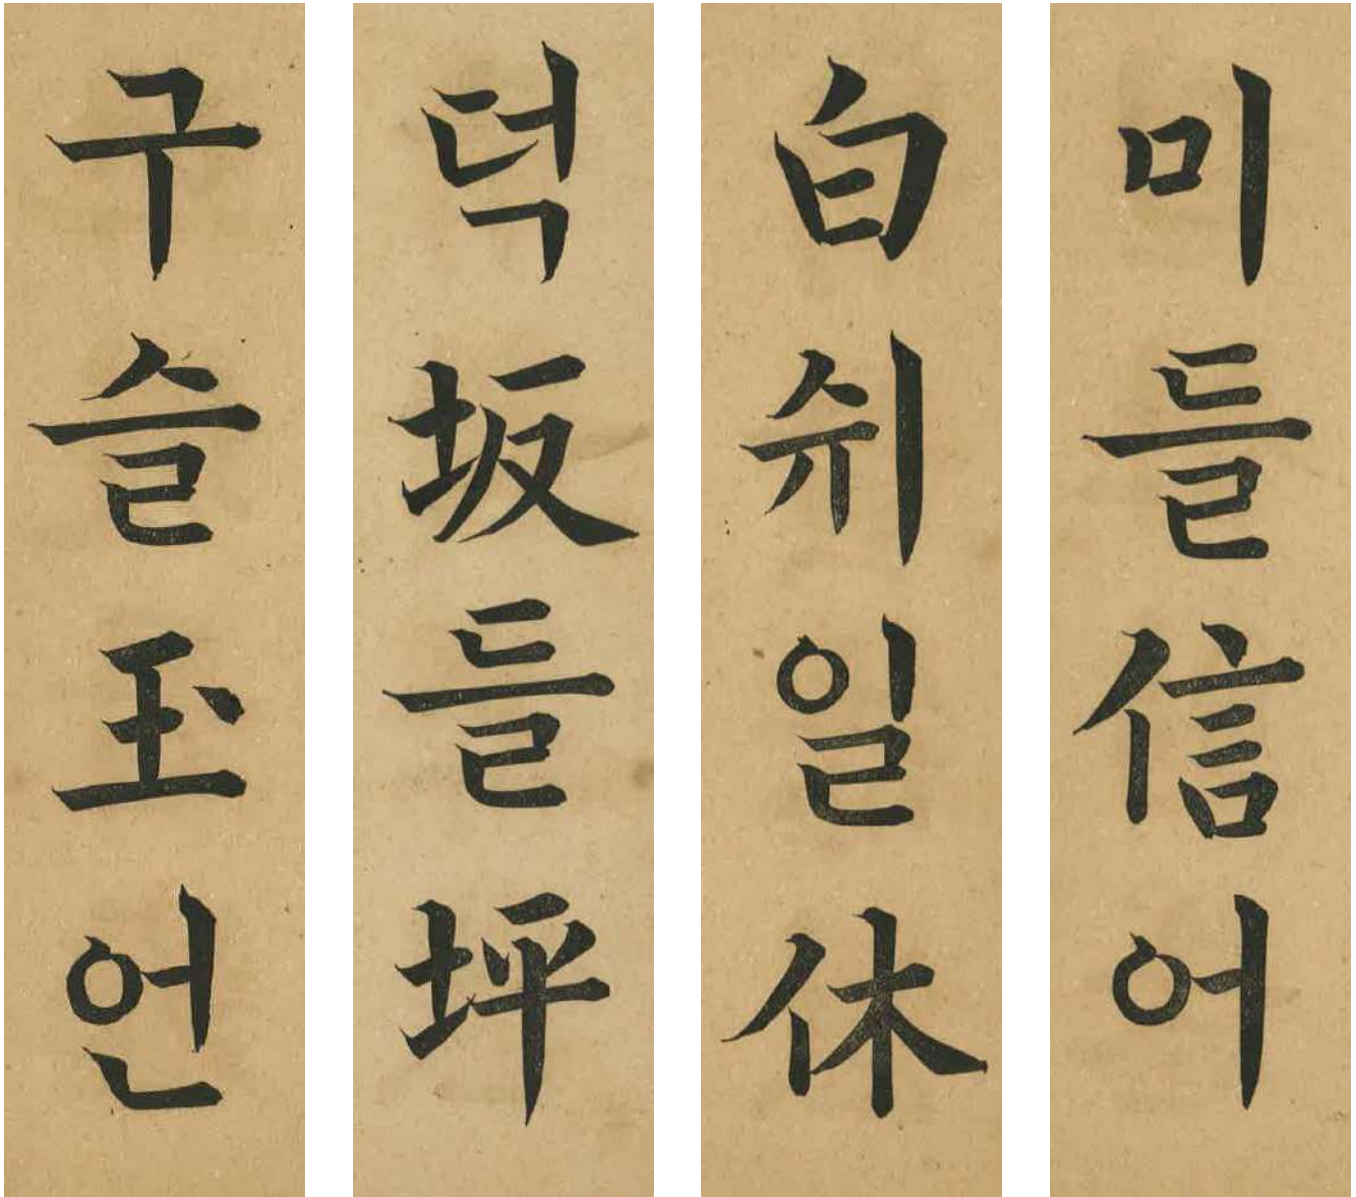 구슬玉언
덕坂들坪
白쉬일休
미들信어